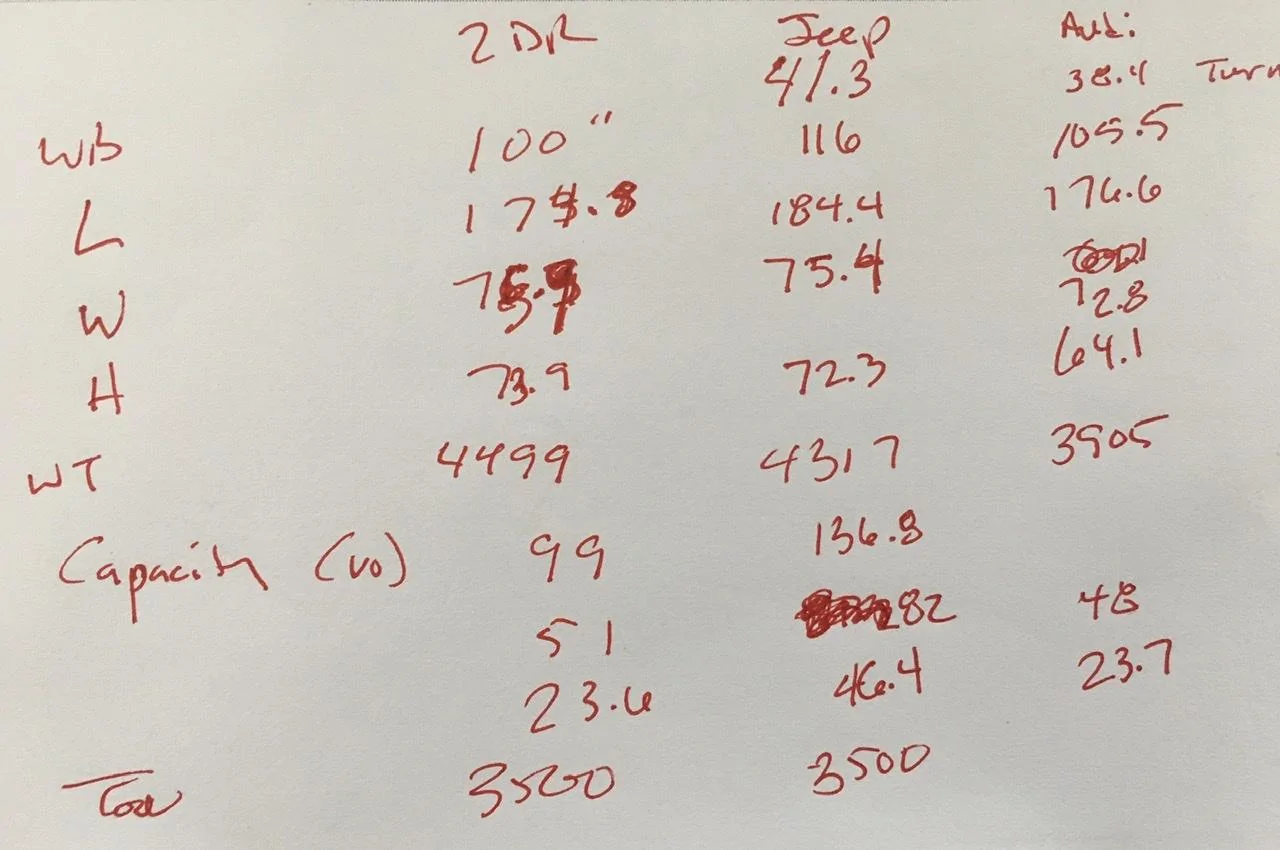 2 DR Jeep Audi
41.3 38.4 Turn
WB 100" 116 105.5
L 184.4 176.6
W 75.4 72.8
H 73.9 72.3 64.1
WT 4499 4317 3905
Capacity (vo) 99 136.8
51 82 48
23.6 46.4 23.7
Tow 3500 3500